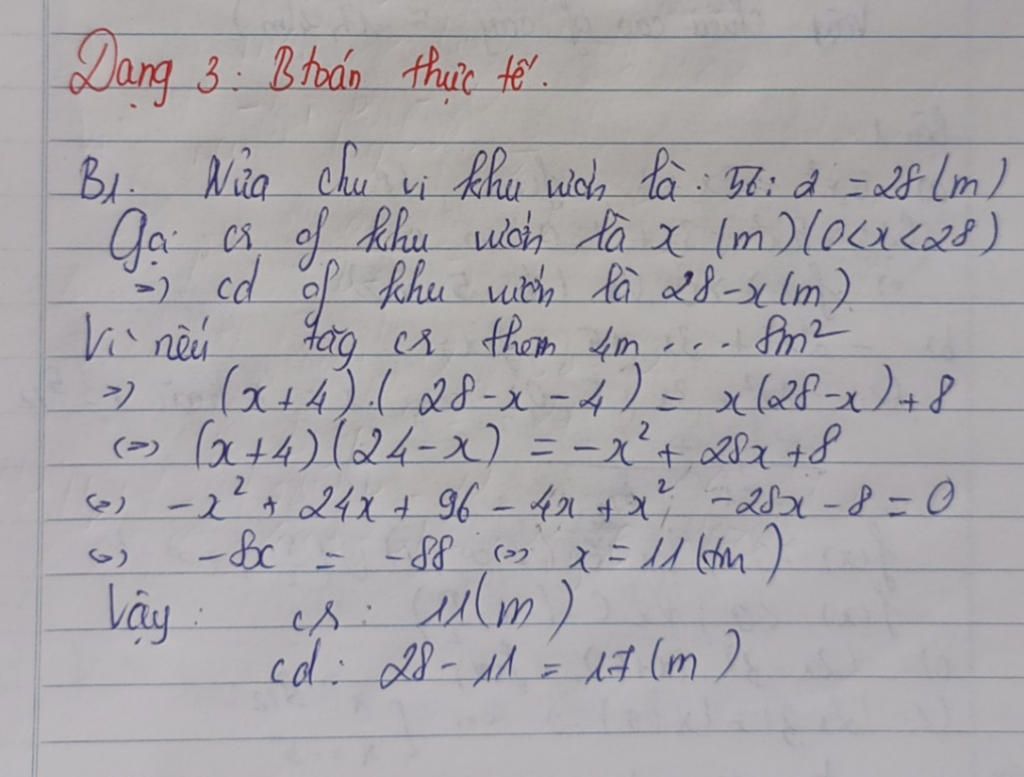 Dạng 3: Btoán thực tế.
B1. Nửa chu vi khu vườn là: 56: 2 = 28(m)
Gọi cr of khu vườn là x (m) (0<x<28)
=) cd of khu vườn là 28-x(m)
Vì nếu tăg cr thêm 4m ... 8m²
=) (x+4).(28-x-4) = x(28-x)+8
(=) (x+4)(24-x) = -x²+28x+8
(=) -x²+24x+96-4x+x²-28x-8=0
(=) -8x = -88 (=) x=11(tm)
Vậy: cr: 11(m)
cd: 28-11=17(m)